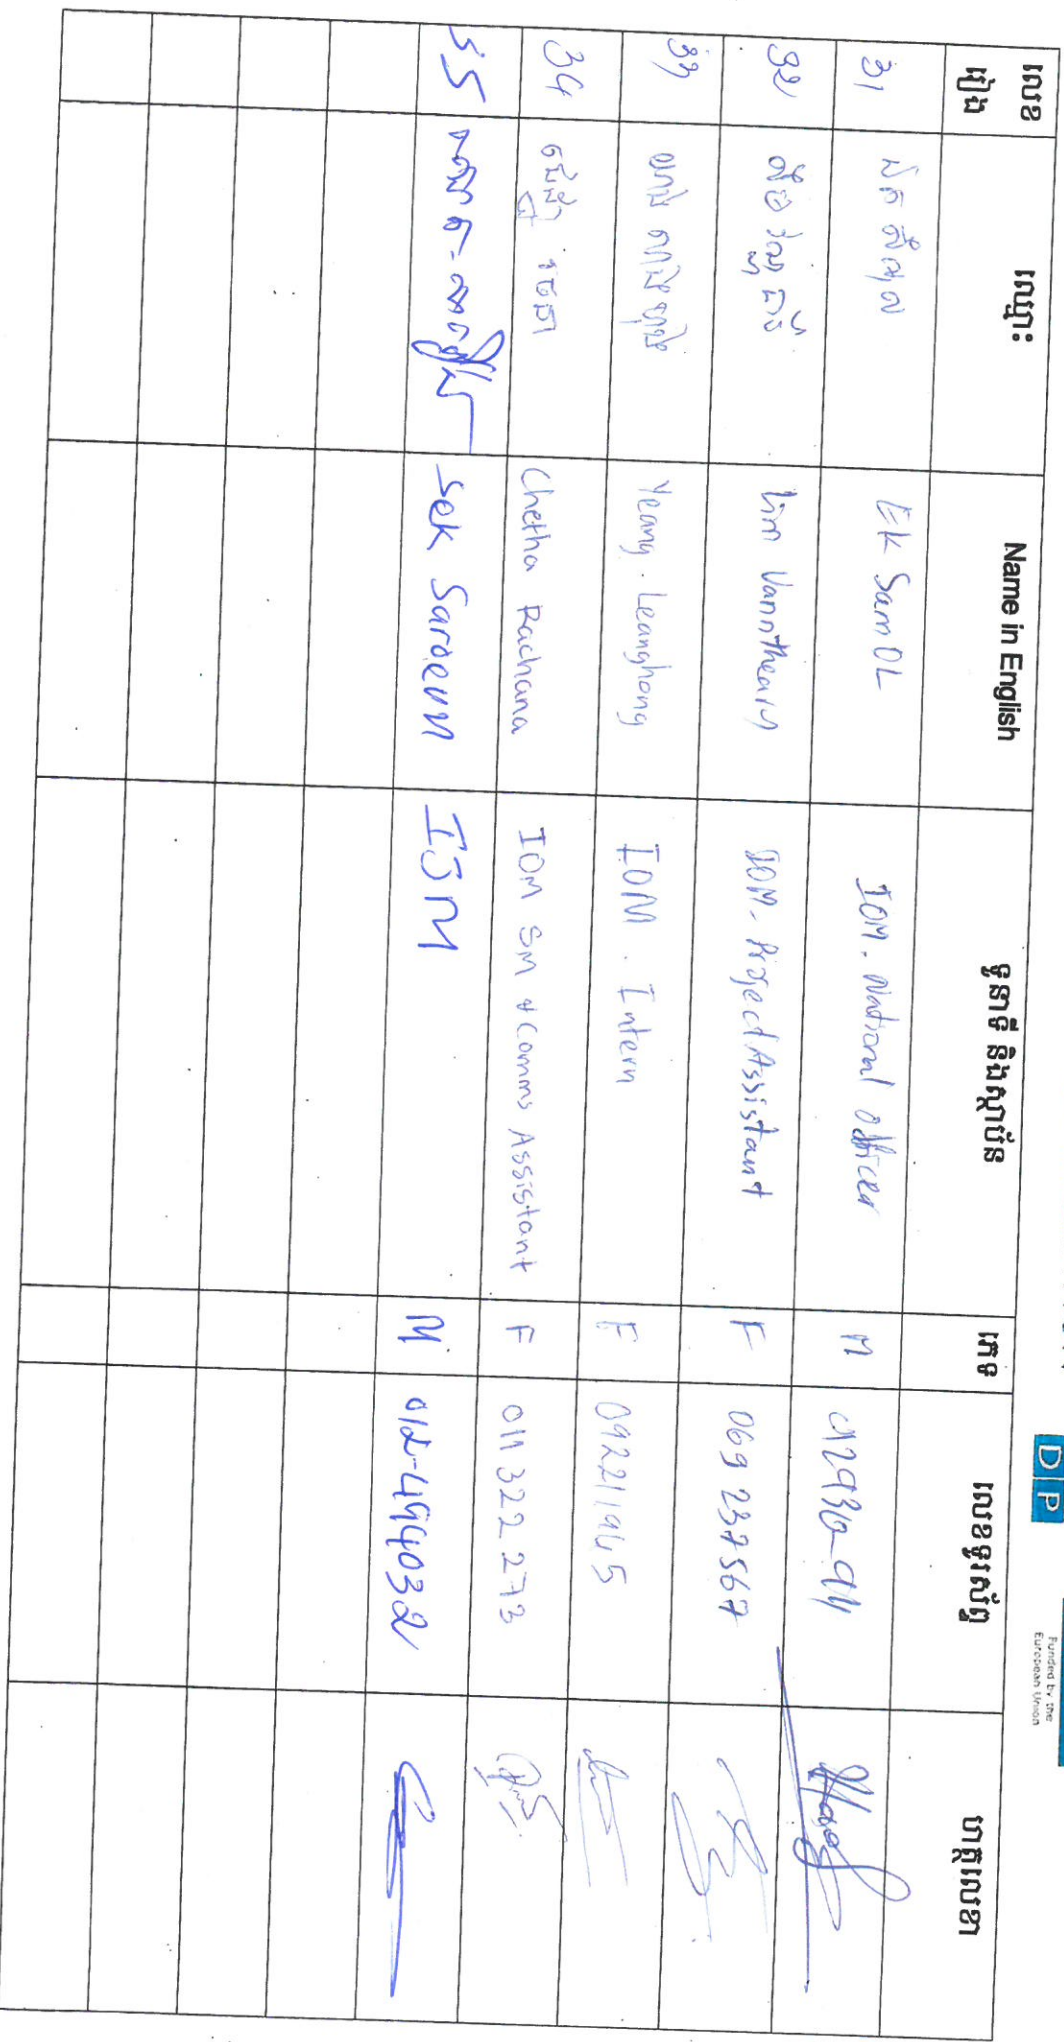 DP
Funded by the
European Union
លេខរៀង ឈ្មោះ Name in English តួនាទី និងស្ថាប័ន ភេទ លេខទូរស័ព្ទ ហត្ថលេខា
31 Ek SamOL IOM. National Officer M
32 Lim Vanntheary IOM. Project Assistant F 069 237567
33 Yeang. Leanghong IOM. Intern F 092211945
34 ចេស្ឋា រចនា Chetha Rachana IOM SM & Comms Assistant F 011 322 273
35 Sek Saroeun IJM M 012-494032